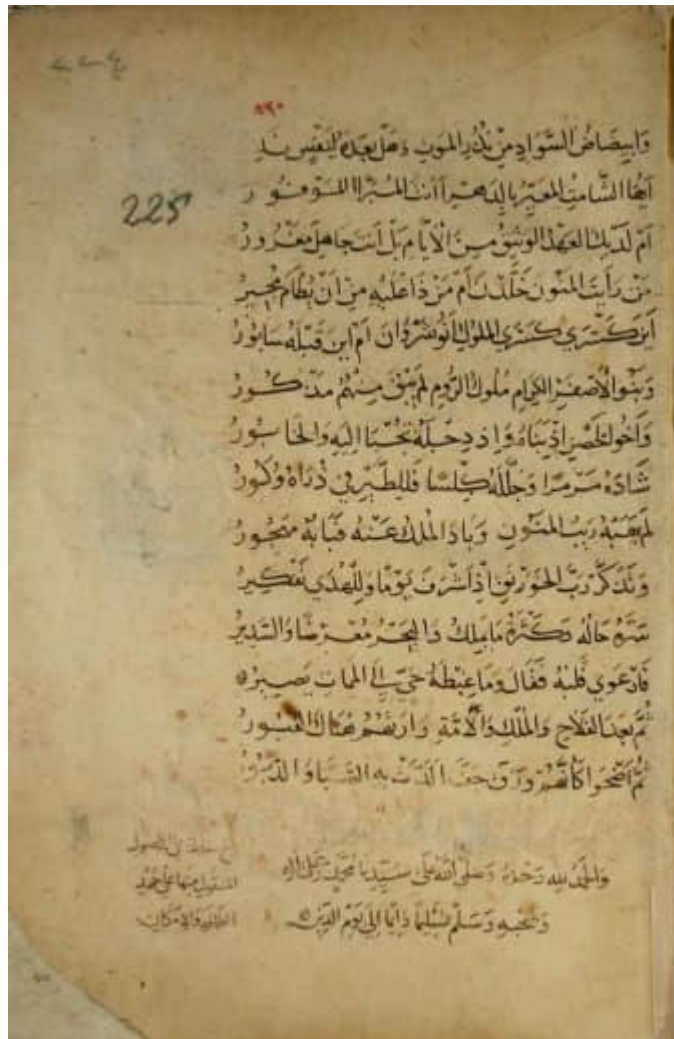 ٢٢٤
٨٩٠
225
وابيضاض السواد من نذر الموت وهل بعده لنفس نذ
أيها الشامت المعير بالدهر أأنت المبرأ الموفور
أم لديك العهد الوثيق من الأيام بل أنت جاهل مغرور
من رأيت المنون خلدن أم من ذا عليه من أن يظام مجير
أين كسرى كسرى الملوك أنوشروان أم أين قبله سابور
وبنو الأصفر الكرام ملوك الروم لم يبق منهم مذكور
وأخو الحضر إذ بناه وإذ دجلة تجبا إليه والخابور
شاده مرمرا وجلله كلسا فللطير في ذراه وكور
لم يهبه ريب المنون وباد الملك عنه فبابه مهجور
وتذكر رب الخورنق إذ أشرف يوما وللهدى تفكير
سره حاله وكثرة ما يملك والبحر معرضا والسدير
فارعوى قلبه فقال وما غبطة حي إلى الممات يصير
ثم بعد الفلاح والملك والأمة وارتهم هناك القبور
ثم أضحوا كأنهم ورق جف ألوت به الصبا والدبور
والحمد لله وحده وصلى الله على سيدنا محمد وعلى آله
وصحبه وسلم تسليما دايما إلى يوم الدين
بلغ مقابلة على الأصول
المنقول منها على حسب
الطاقة والإمكان